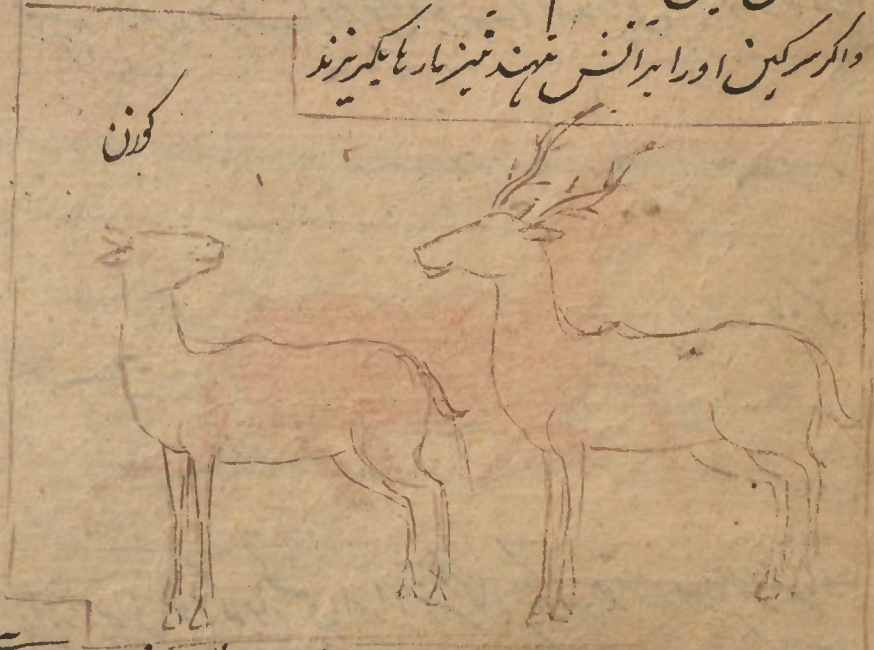 واکر سرکین او را بر آتش نهند نیز مارها بکریزند
کوزن